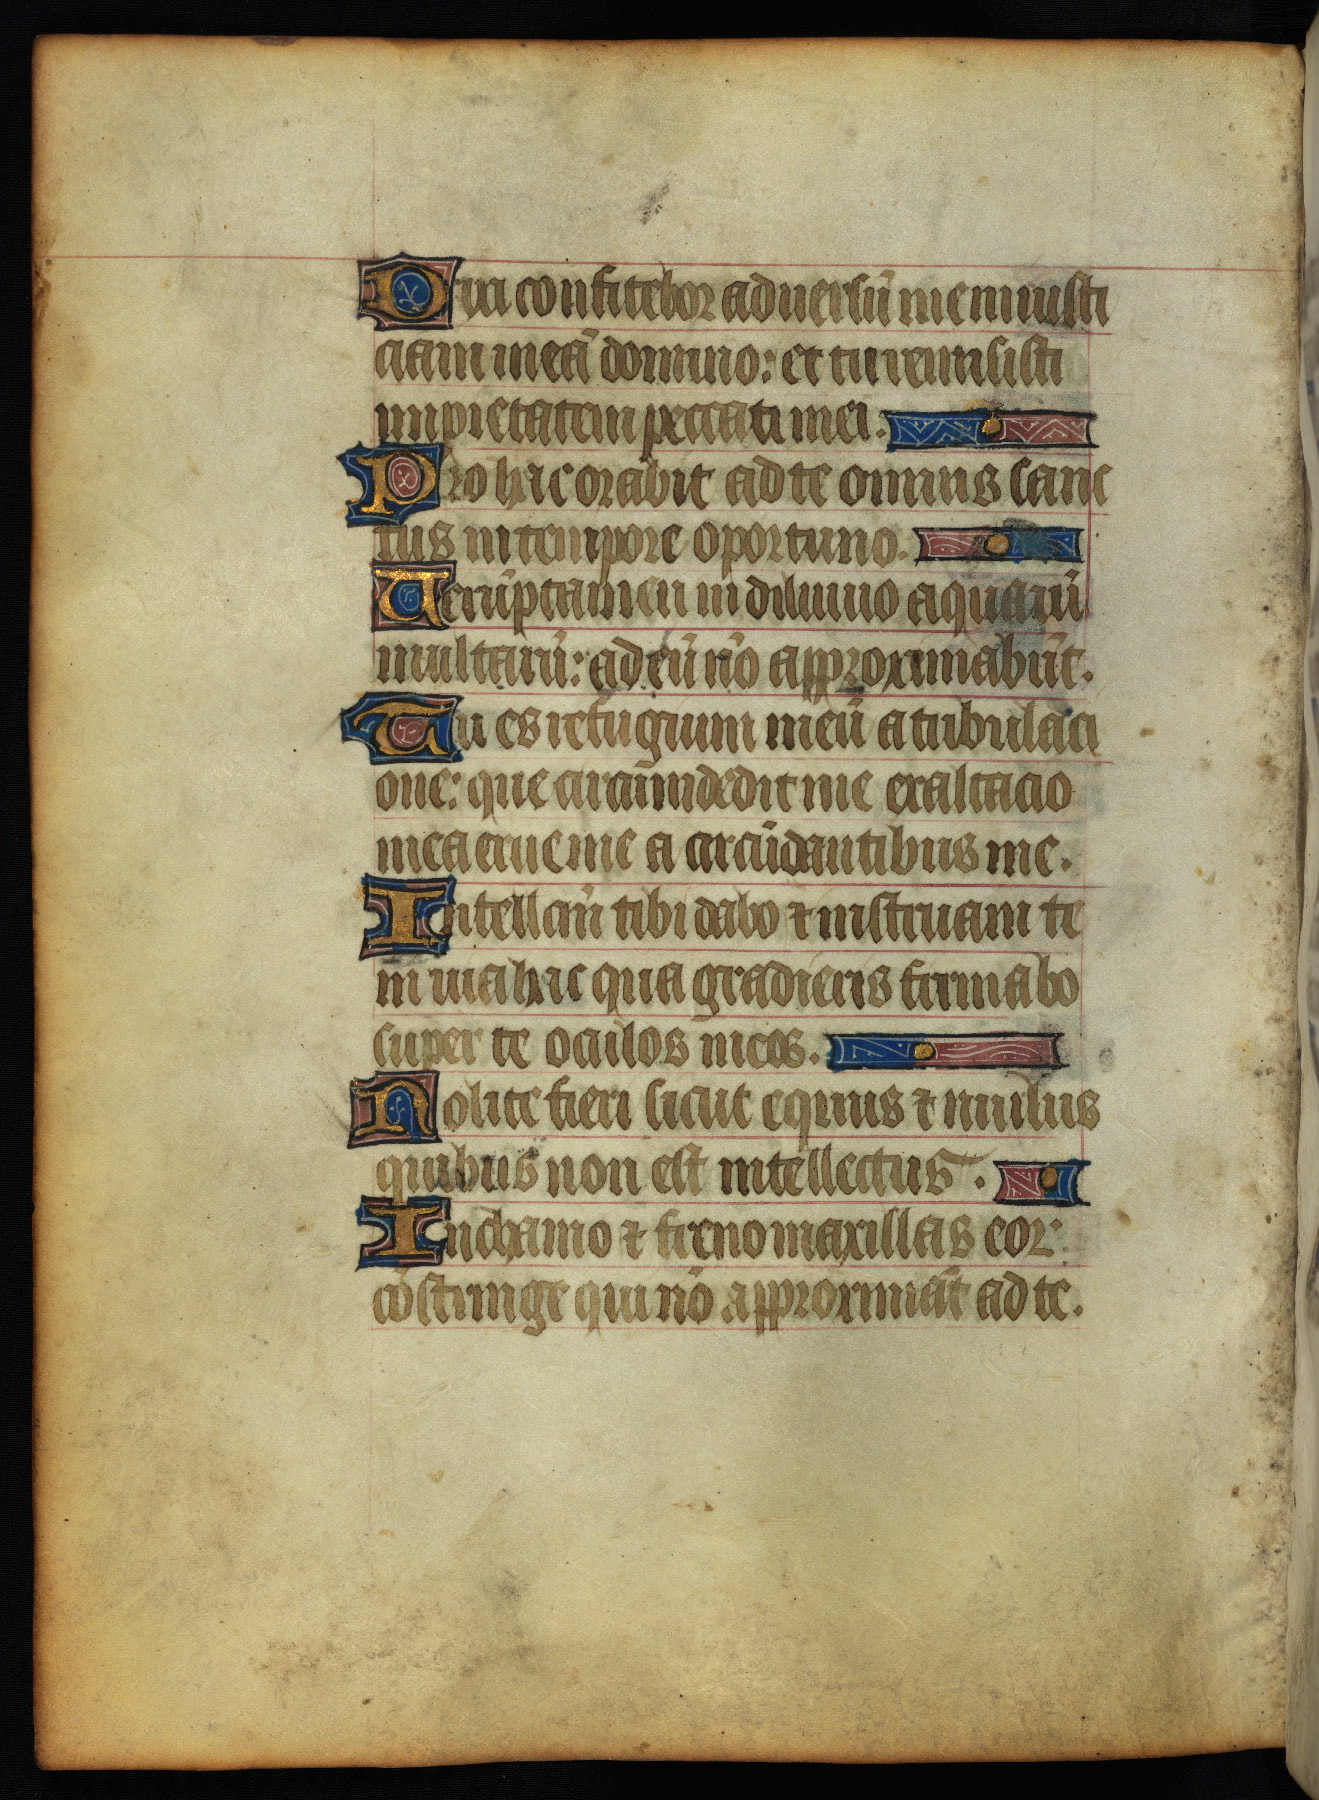 Dixi confitebor aduersũ me iniusti
ciam meã domino: et tu remisisti
impietatem peccati mei.
Pro hac orabit ad te omnis sanc
tus in tempore oportuno.
Uerũptamen in diluuio aquarũ
multarũ: ad eũ nõ approximabũt.
Tu es refugium meũ a tribulaci
one: que circũmdedit me exaltacio
mea erue me a circũdantibus me.
Intellcm̃ tibi dabo ⁊ instruam te
in uia hac qua gradieris firmabo
super te oculos meos.
Nolite fieri sicut equus ⁊ mulus
quibus non est intellectus.
In chamo ⁊ freno maxillas eor
cõstringe qui nõ approximãt ad te.